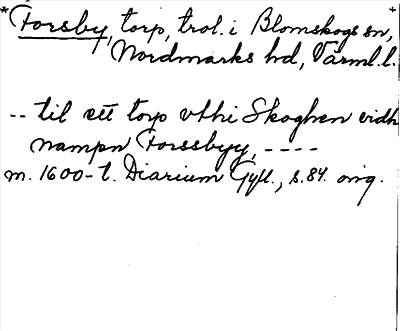 *Forsby, torp, trol. i Blomskogs sn, +
Nordmarks hd, Värml.l.
-- til ett torp vthi Skoghen vidh
nampn Forssbyy, ----
m. 1600-t. Diarium Gyll., s.84. orig.